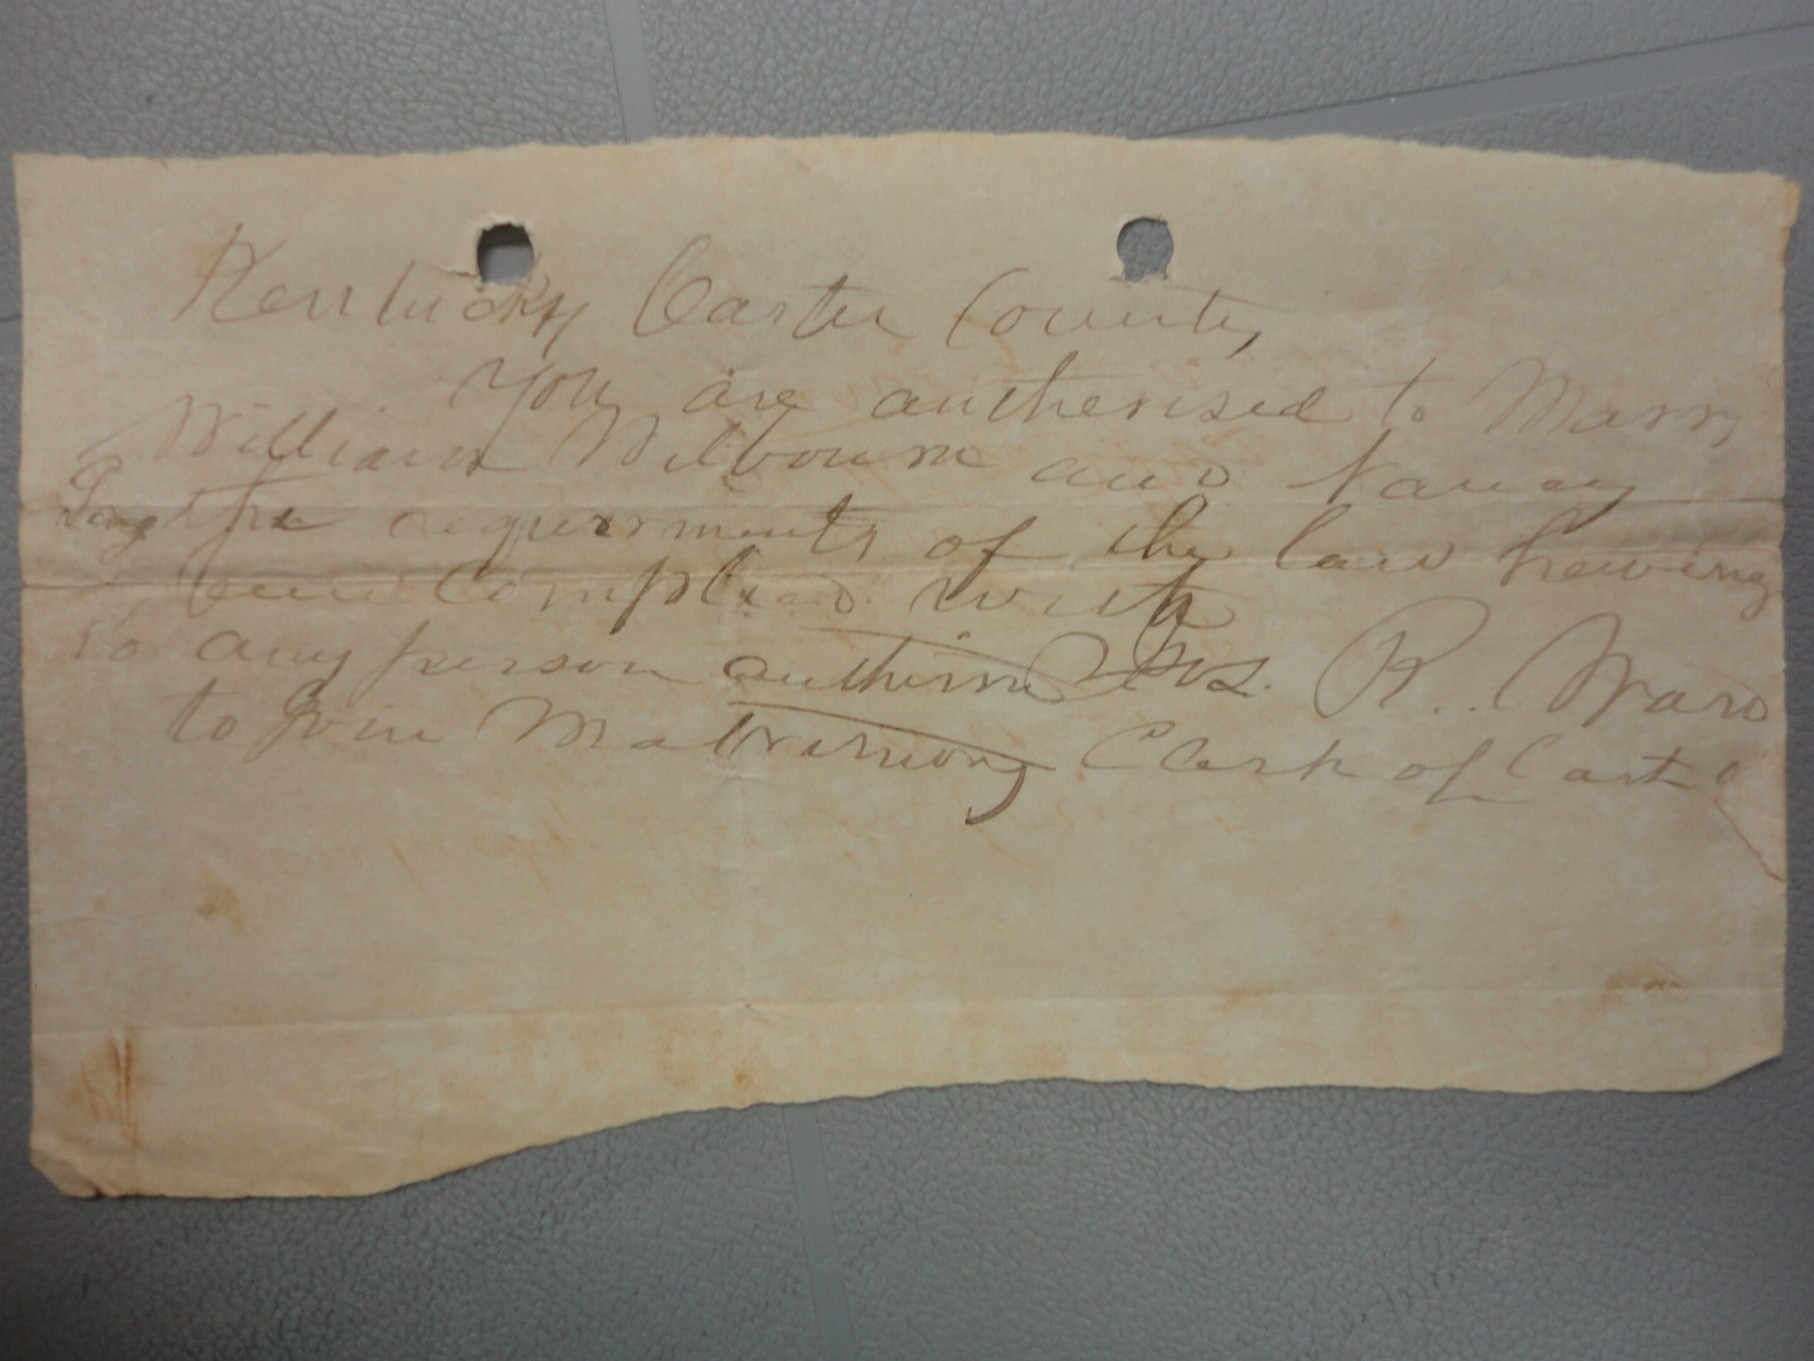 Kentucky Carter County
You are autherised to Marry
William Wilbourn and Nancy
the requirments of the law having
been Complied with
To any person R. Ward
to Join Matrimony Clerk of Carter